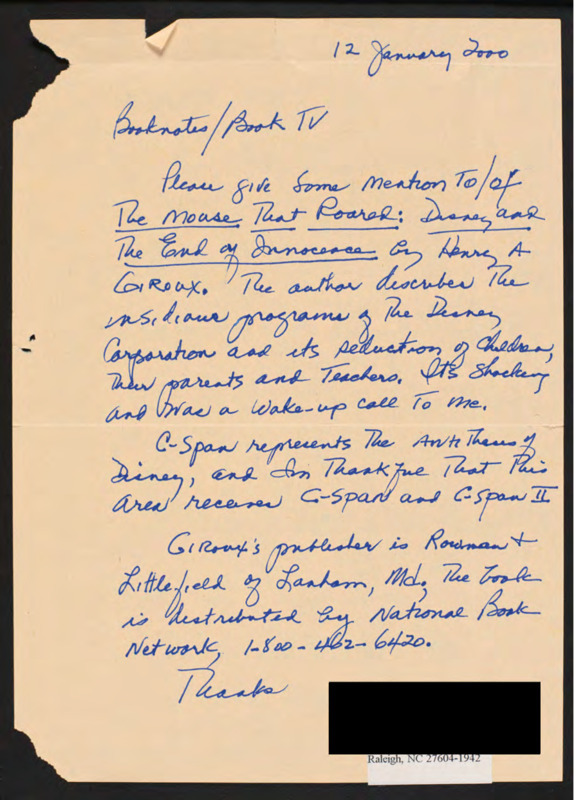 12 January 2000
Booknotes/Book TV
Please give some mention to/of
The Mouse That Roared: Disney and
The End of Innocence by Henry A
Giroux. The author describes the
insidious programs of the Disney
Corporation and its seduction of children,
their parents and teachers. It's shocking
and was a wake-up call to me.
C-Span represents the antithesis of
Disney, and I'm thankful that this
area receives C-Span and C-Span II
Giroux's publisher is Rowman +
Littlefield of Lanham, Md; The book
is distributed by National Book
Network, 1-800-462-6420.
Thanks
Raleigh, NC 27604-1942